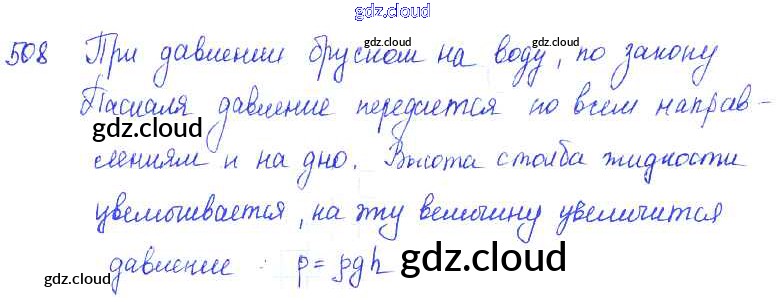 gdz.cloud
508 При давлении бруском на воду, по закону
gdz.cloud gdz.cloud
Паскаля давление передается по всем направ-
gdz.cloud
лениям и на дно. Высота столба жидкости
gdz.cloud
увеличивается, на эту величину увеличится
давление : p = ρgh
gdz.cloud gdz.cloud